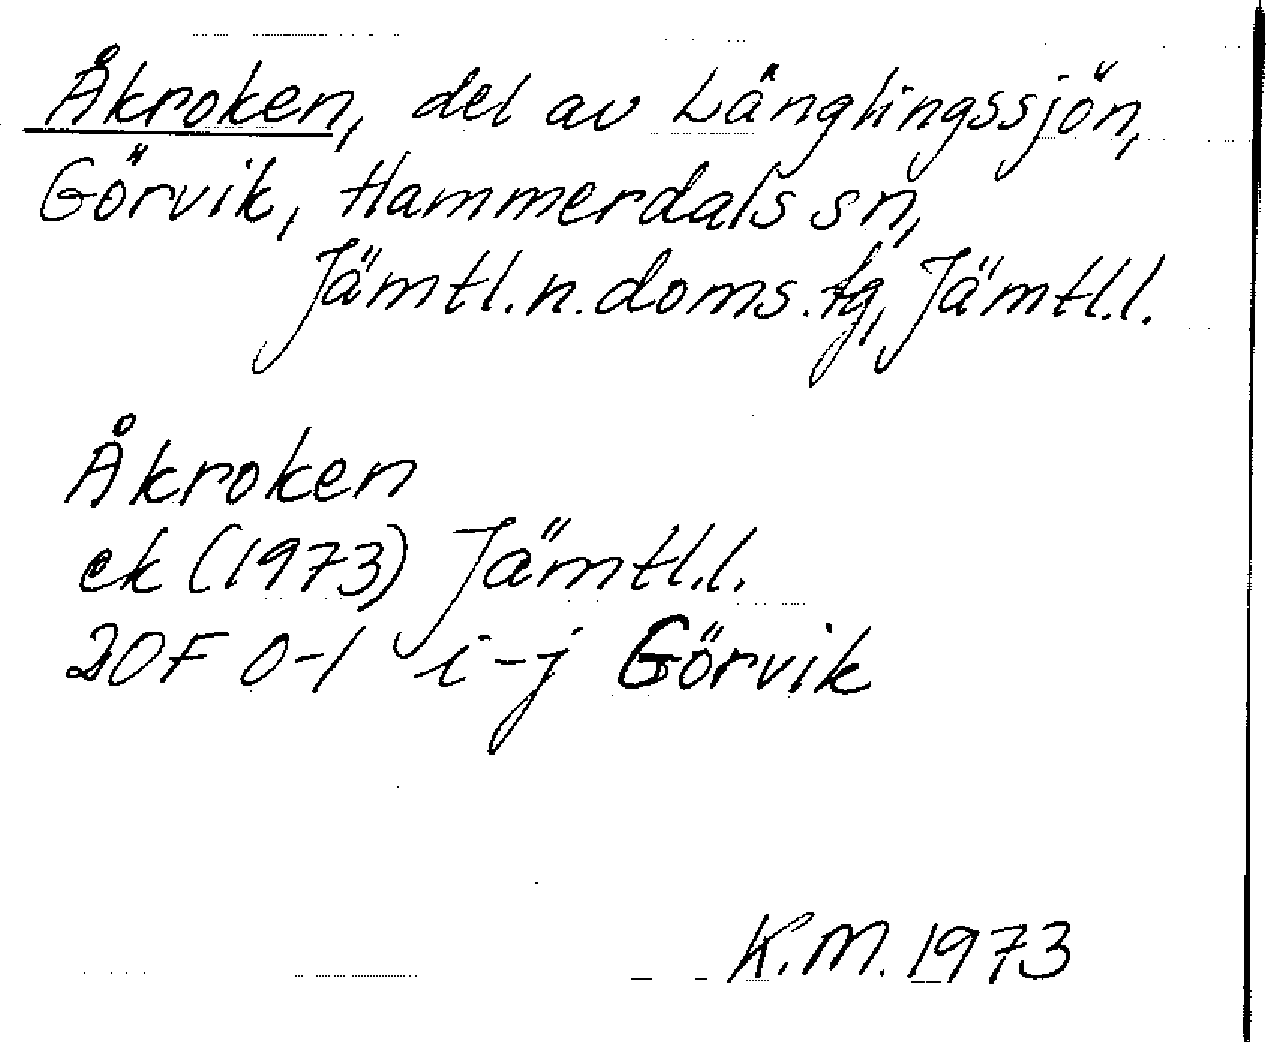 Åkroken, del av Länglingssjön,
Görvik, Hammerdals sn,
Jämtl.n.doms.tg, Jämtl.l.
Åkroken
ek (1973) Jämtl.l.
20F 0-1 i-j Görvik
K.M. 1973